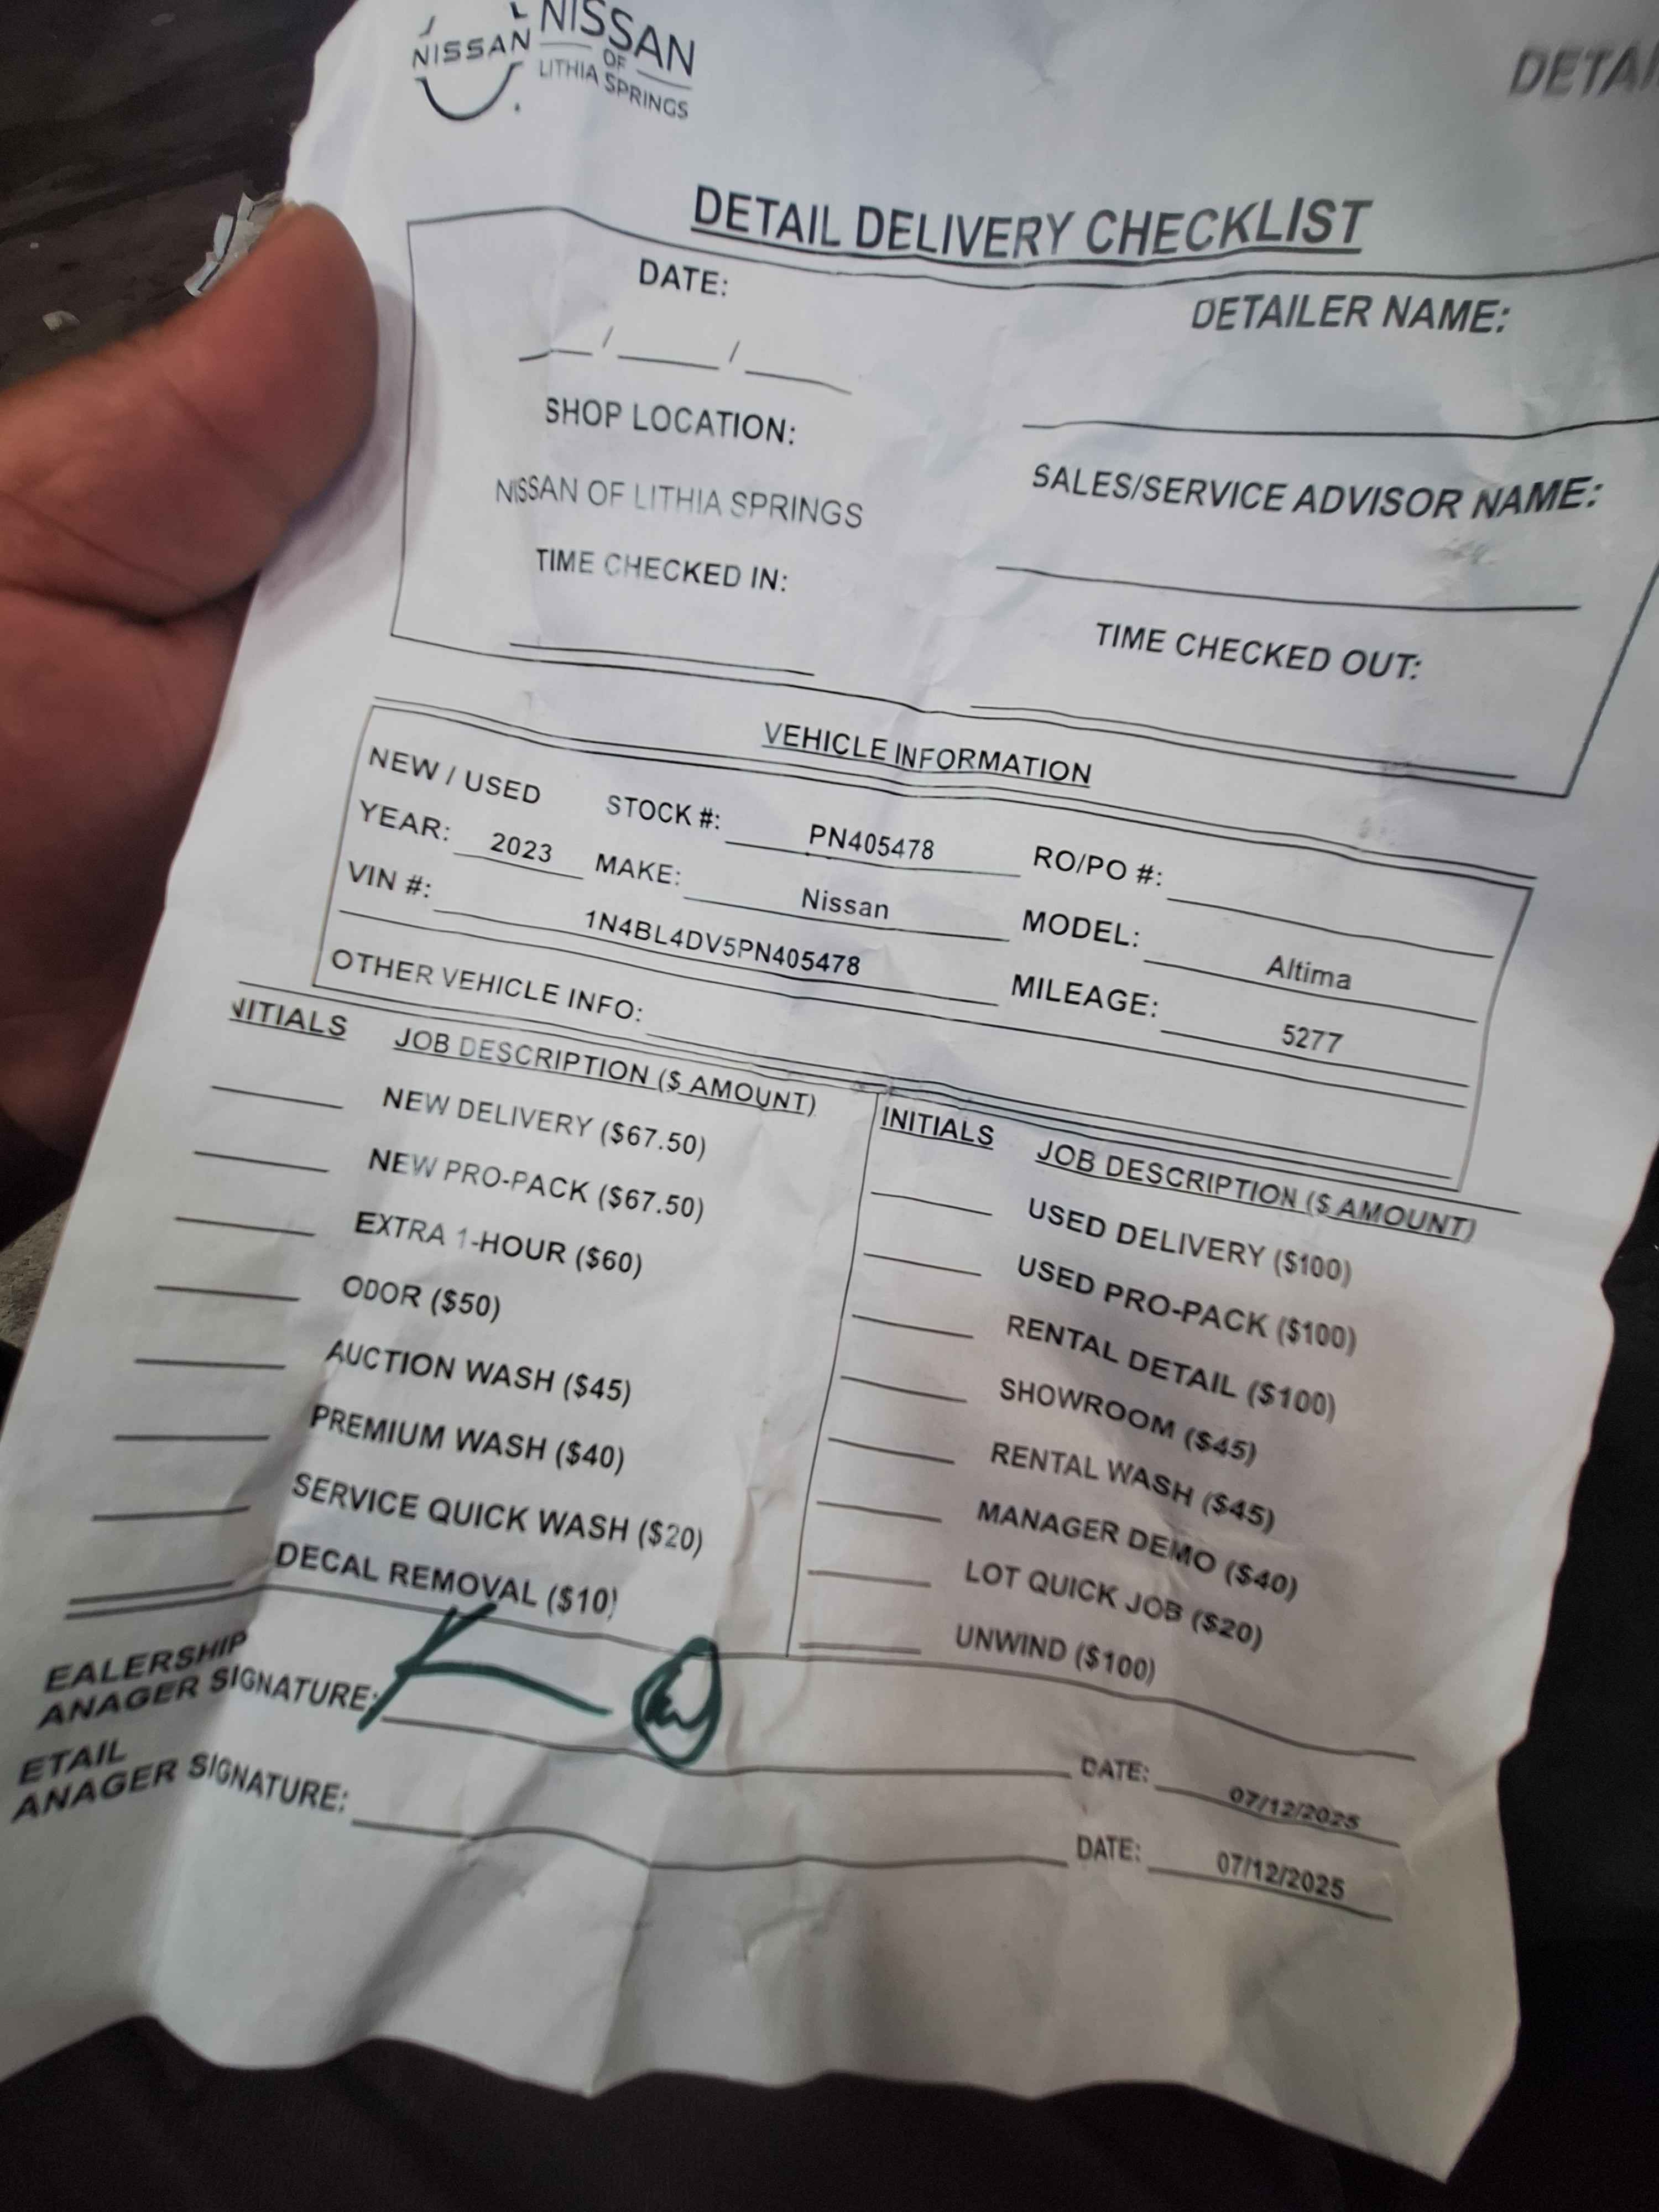 NISSAN
NISSAN
OF
LITHIA SPRINGS
DETAI
DETAIL DELIVERY CHECKLIST
DATE:
DETAILER NAME:
___/____/____
SHOP LOCATION:
NISSAN OF LITHIA SPRINGS
SALES/SERVICE ADVISOR NAME:
TIME CHECKED IN:
TIME CHECKED OUT:
VEHICLE INFORMATION
NEW / USED STOCK #: PN405478 RO/PO #:
YEAR: 2023 MAKE: Nissan MODEL: Altima
VIN #: 1N4BL4DV5PN405478 MILEAGE: 5277
OTHER VEHICLE INFO:
NITIALS JOB DESCRIPTION ($ AMOUNT)
NEW DELIVERY ($67.50)
NEW PRO-PACK ($67.50)
EXTRA 1-HOUR ($60)
ODOR ($50)
AUCTION WASH ($45)
PREMIUM WASH ($40)
SERVICE QUICK WASH ($20)
DECAL REMOVAL ($10)
INITIALS JOB DESCRIPTION ($ AMOUNT)
USED DELIVERY ($100)
USED PRO-PACK ($100)
RENTAL DETAIL ($100)
SHOWROOM ($45)
RENTAL WASH ($45)
MANAGER DEMO ($40)
LOT QUICK JOB ($20)
UNWIND ($100)
EALERSHIP
ANAGER SIGNATURE: DATE: 07/12/2025
ETAIL
ANAGER SIGNATURE: DATE: 07/12/2025